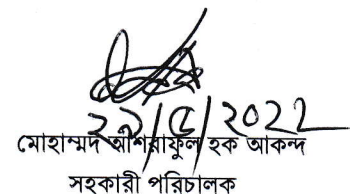 ২৯/৫/২০২২
মোহাম্মদ আশরাফুল হক আকন্দ
সহকারী পরিচালক